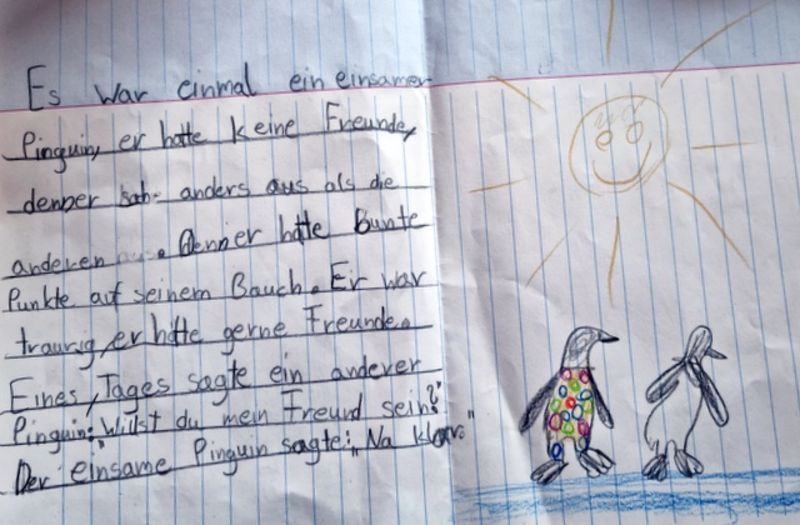 Es war einmal ein einsamer
Pinguin, er hatte keine Freunde,
denn er sah anders aus als die
anderen. Denn er hatte Bunte
Punkte auf seinem Bauch. Er war
traurig, er hätte gerne Freunde.
Eines, Tages sagte ein anderer
Pinguin: "Willst du mein Freund sein?"
Der einsame Pinguin sagte: „Na klar."